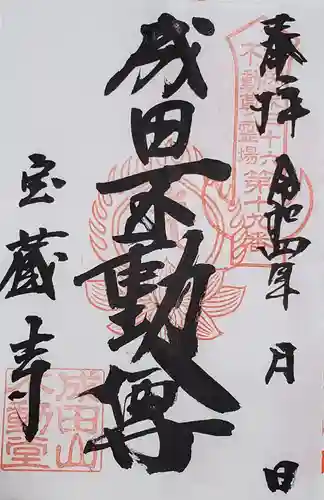 奉拝 令和四年 月 日
不動尊霊場 第十九番
成田不動尊
宝蔵寺
成田山
不動堂